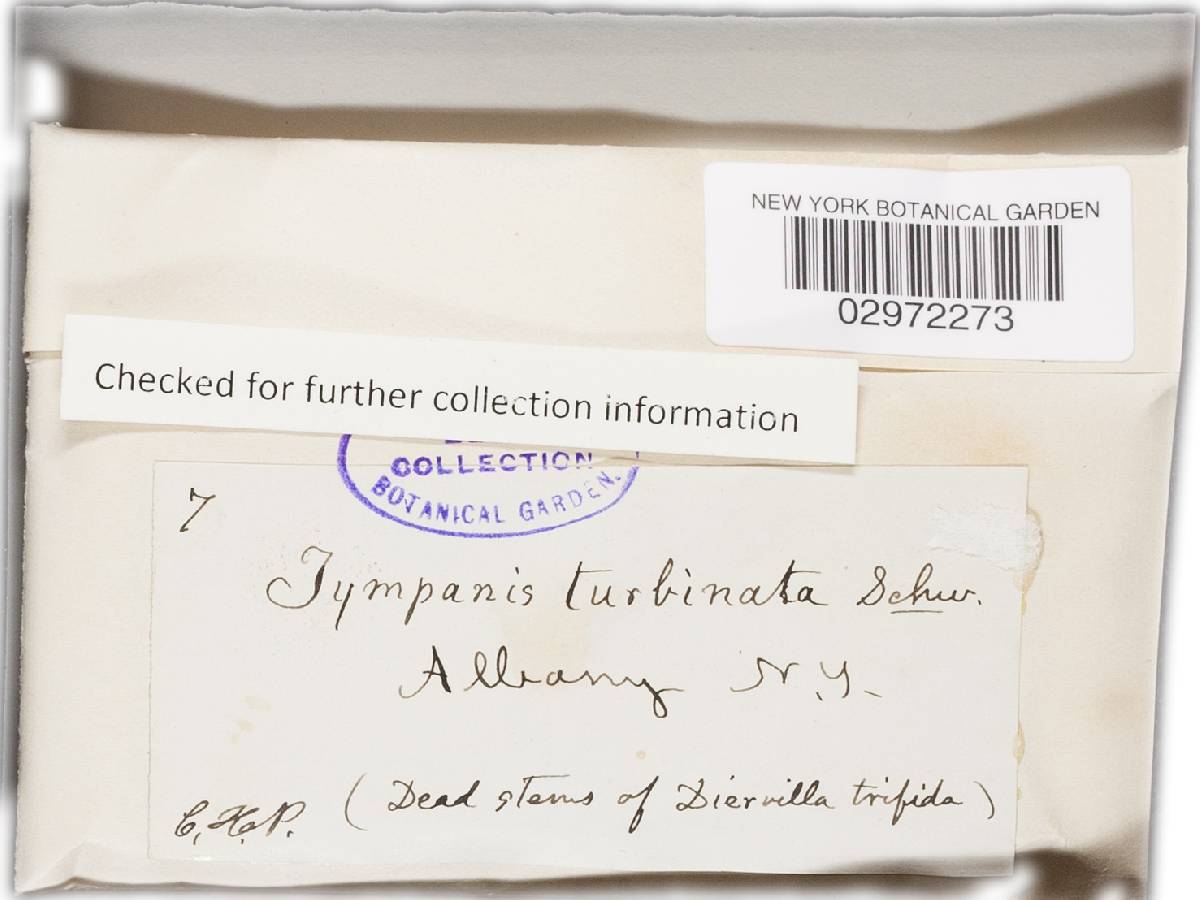 NEW YORK BOTANICAL GARDEN
02972273
Checked for further collection information
COLLECTION
BOTANICAL GARDEN.
7
Tympanis turbinata Schw.
Albany N.Y.
(Dead stems of Diervilla trifida)
C.H.P.